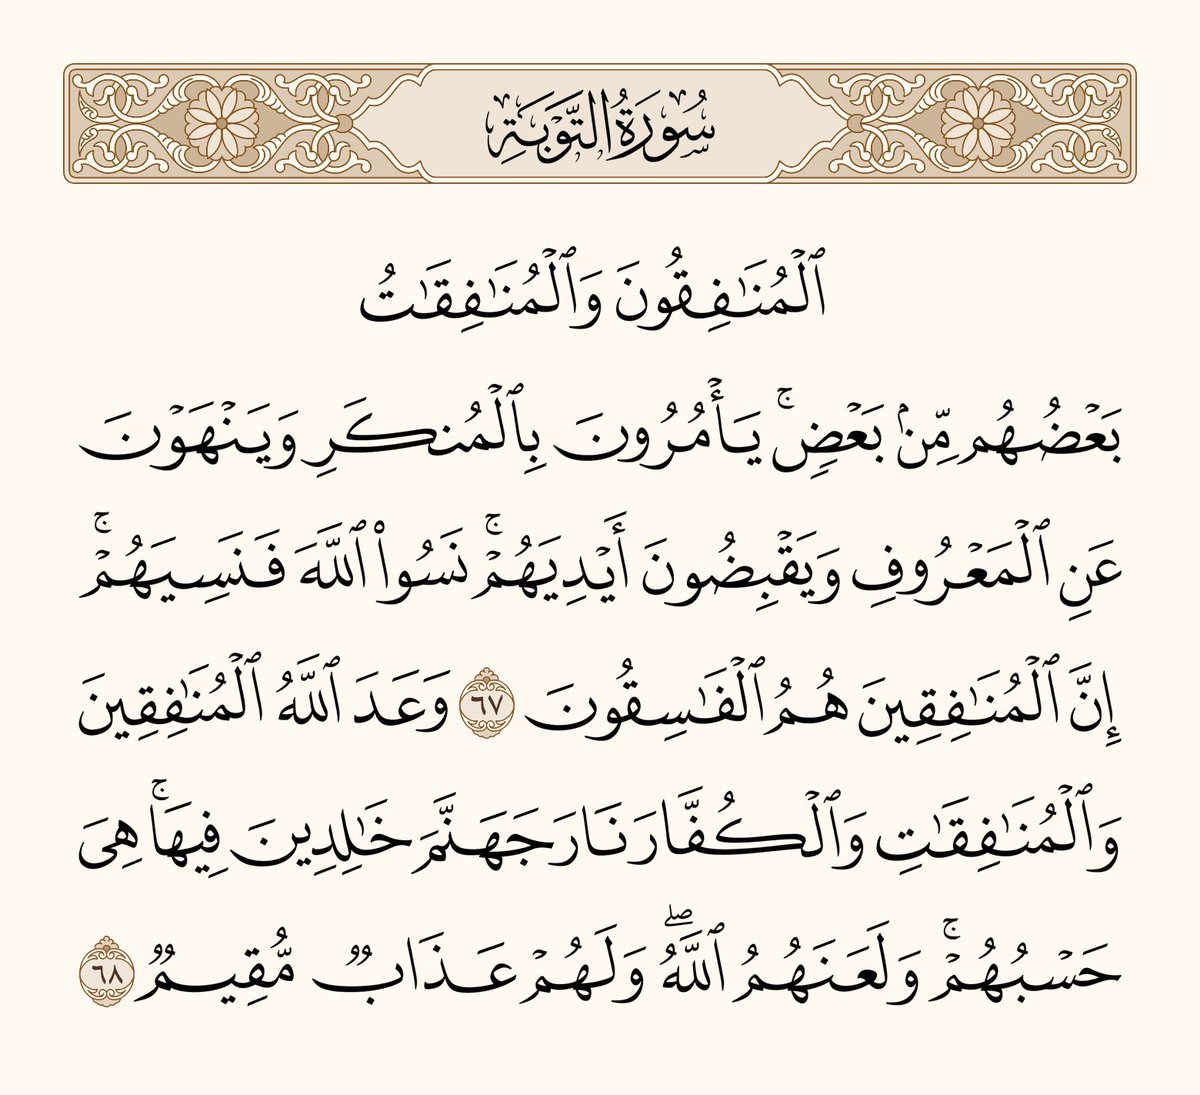 سُورَةُ التَّوْبَةِ
ٱلْمُنَٰفِقُونَ وَٱلْمُنَٰفِقَٰتُ
بَعْضُهُم مِّنۢ بَعْضٍۚ يَأْمُرُونَ بِٱلْمُنكَرِ وَيَنْهَوْنَ
عَنِ ٱلْمَعْرُوفِ وَيَقْبِضُونَ أَيْدِيَهُمْۚ نَسُوا۟ ٱللَّهَ فَنَسِيَهُمْۚ
إِنَّ ٱلْمُنَٰفِقِينَ هُمُ ٱلْفَٰسِقُونَ ٦٧ وَعَدَ ٱللَّهُ ٱلْمُنَٰفِقِينَ
وَٱلْمُنَٰفِقَٰتِ وَٱلْكُفَّارَ نَارَ جَهَنَّمَ خَٰلِدِينَ فِيهَاۚ هِىَ
حَسْبُهُمْۚ وَلَعَنَهُمُ ٱللَّهُۖ وَلَهُمْ عَذَابٌ مُّقِيمٌ ٦٨